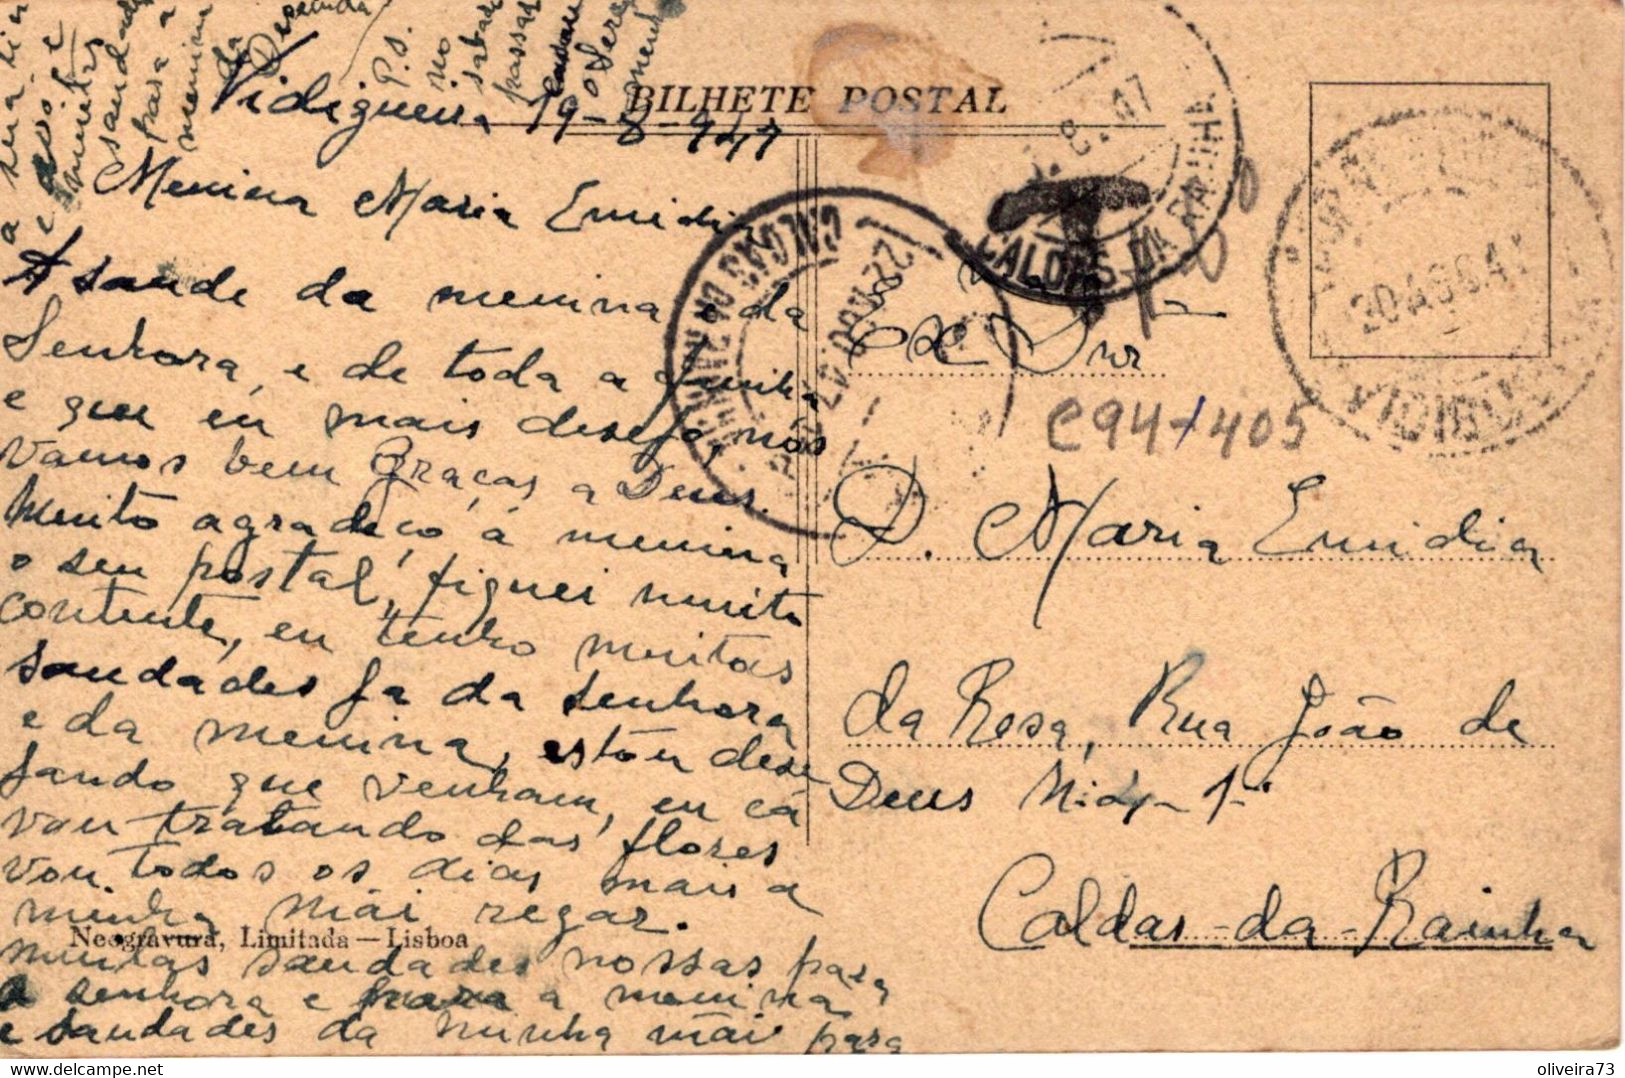 BILHETE POSTAL
Vidigueira 19-8-947
Menina Maria Emidia
A saude da menina e da
Senhora, e de toda a familha
e que eu mais desejo, nós
vamos bem Graças a Deus.
Muito agradeço á menina
o seu postal, fiquei muito
contente, eu tenho muitas
saudades ja da senhora
e da menina, estou dese
jando que venham, eu cá
vou tratando das flores
vou todos os dias mais a
minha mãi regar.
muitas saudades nossas para
a senhora e para a menina
e saudades da minha mãi para
a
avó e
muitas
saudades
para a
menina
da
P.S.
no
passar
Neogravura, Limitada — Lisboa
Ex Snr
D. Maria Emidia
da Rosa, Rua João de
Deus Nº 4-1º
Caldas-da-Rainha
CALDAS DA RAINHA
22 AGO 47
CALDAS DA RAINHA
8. 47
T
20 AGO 4
VIDIGUEIRA
C94+405
https://www.delcampe.net
oliveira73